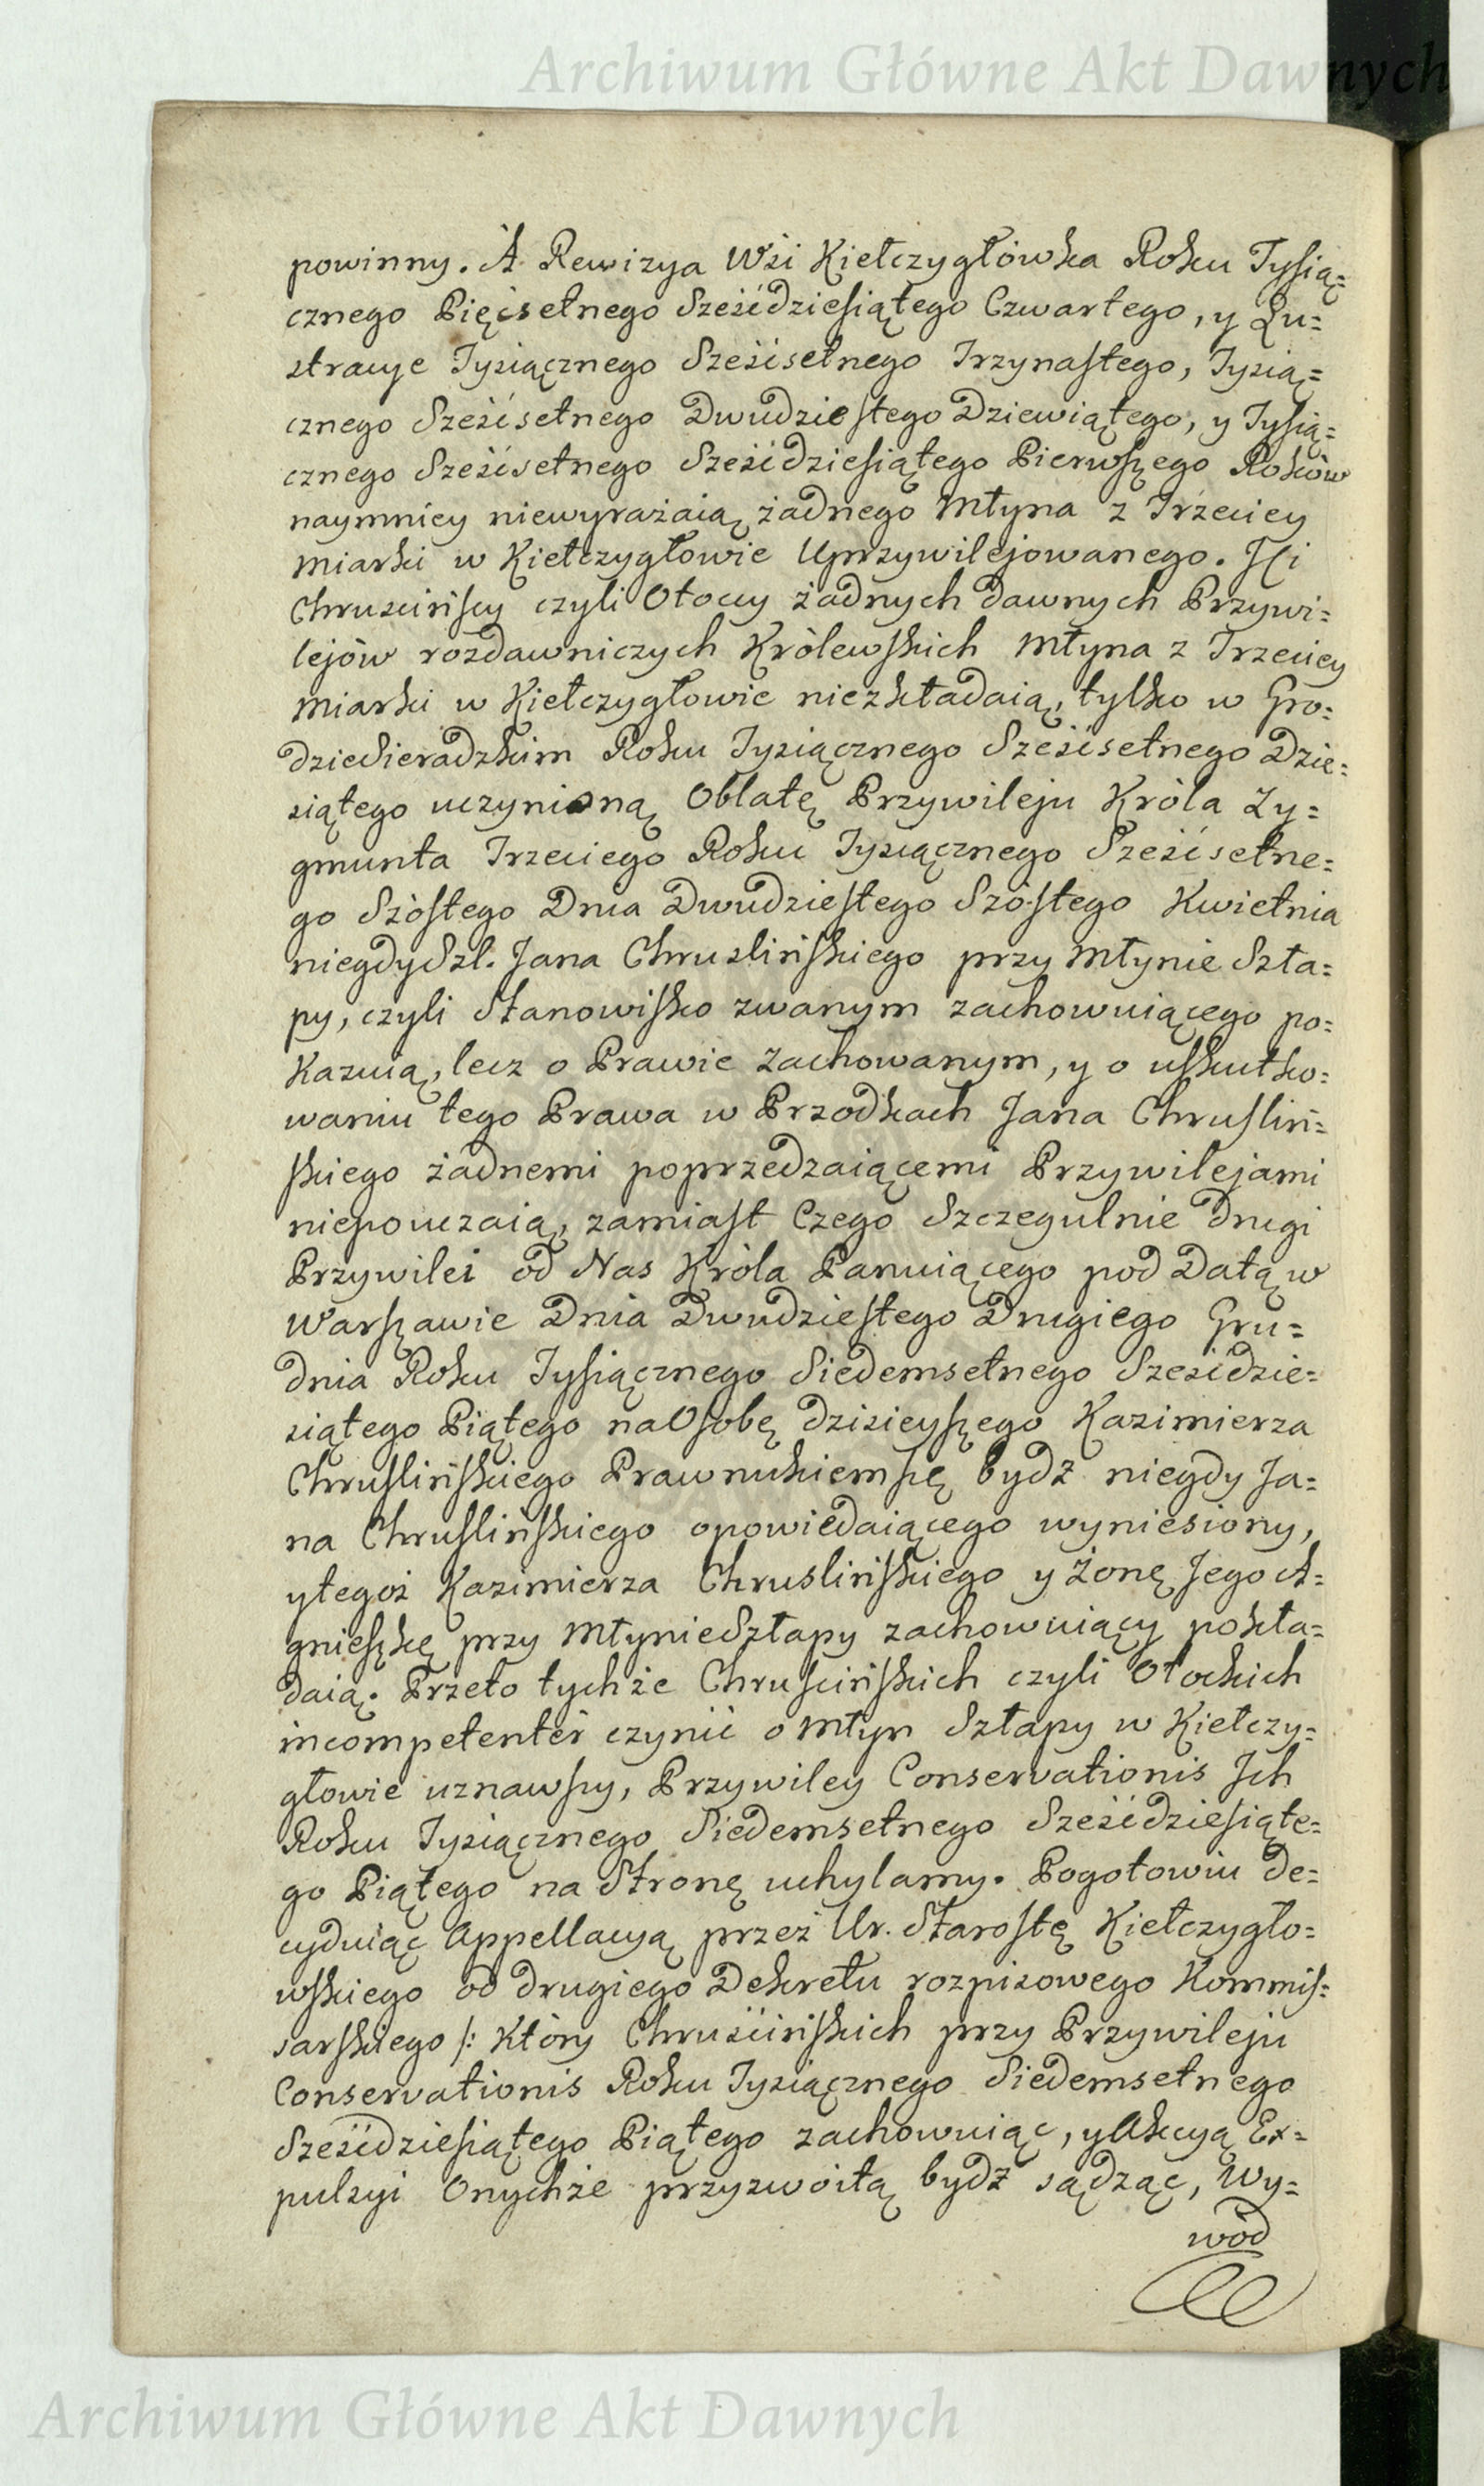 Archiwum Główne Akt Dawnych
powinny. A Rewizya Wsi Kiełczygłówka Roku Tysią=
cznego Pięćsetnego Sześćdziesiątego Czwartego, y Lu=
stracye Tysiącznego Sześćsetnego Trzynastego, Tysią=
cznego Sześćsetnego Dwudziestego Dziewiątego, y Tysią=
cznego Sześćsetnego Sześćdziesiątego Pierwszego Roków
naymniey niewyrażaią żadnego Młyna z Trzeciey
Miarki w Kiełczygłowie Uprzywilejowanego. Jż i
Chruscińscy czyli Otoccy żadnych dawnych Przywi=
lejów rozdawniczych Królewskich Młyna z Trzeciey
Miarki w Kiełczygłowie niezkładaią, tylko w Gro=
dzie Sieradzkim Roku Tysiącznego Sześćsetnego Dzie=
siątego uczynioną Oblatę Przywileju Króla Zy=
gmunta Trzeciego Roku Tysiącznego Sześćsetne=
go Szóstego Dnia Dwudziestego Szóstego Kwietnia
niegdy Szl. Jana Chruslińskiego przy Młynie Szła=
py, czyli Stanowisko zwanym zachowuiącego po=
kazuią, lecz o Prawie zachowanym, y o uskutko=
waniu tego Prawa w Przodkach Jana Chrusliń=
skiego żadnemi poprzedzaiącemi Przywilejami
niepouczaią, zamiast Czego Szczegulnie drugi
Przywilei od Nas Króla Panuiącego pod Datą w
Warszawie Dnia Dwudziestego Drugiego Gru=
dnia Roku Tysiącznego Siedemsetnego Sześćdzie=
siątego Piątego na Osobę dzisieyszego Kazimierza
Chruslińskiego Prawnukiem się bydź niegdy Ja=
na Chruslińskiego opowiedaiącego wyniesiony,
y tegoż Kazimierza Chruslińskiego y Żonę Jego A=
gnieszkę przy Młynie Szłapy zachowuiący pokła=
daią. Przeto tychże Chruscińskich czyli Otockich
incompetentèr czynić o Młyn Szłapy w Kiełczy=
głowie uznawszy, Przywiley Conservationis Jch
Roku Tysiącznego Siedemsetnego Sześćdziesiąte=
go Piątego na Stronę uchylamy. Pogotowiu de=
cyduiąc Appellacyą przez Ur. Starostę Kiełczygło=
wskiego od drugiego Dekretu rozpisowego Kommis=
sarskiego /: który Chruścińskich przy Przywileju
Conservationis Roku Tysiącznego Siedemsetnego
Sześćdziesiątego Piątego zachowuiąc, y Akcyą Ex=
pulsyi Onychże przyzwoitą bydź sądząc, Wy=
wód
Archiwum Główne Akt Dawnych